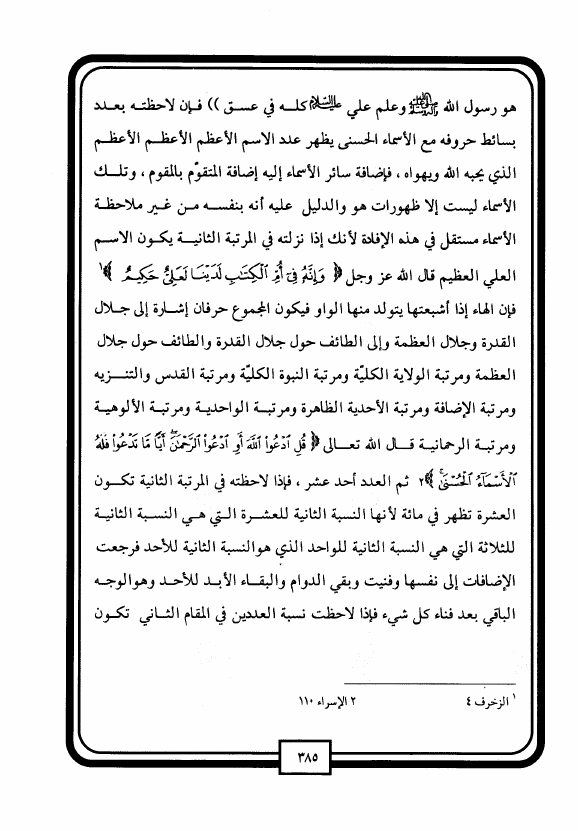 هو رسول الله ﷺ وعلم علي عليه السلام كله في عسق )) فإن لاحظته بعدد
بسائط حروفه مع الأسماء الحسنى يظهر عدد الاسم الأعظم الأعظم الأعظم
الذي يحبه الله ويهواه ، فإضافة سائر الأسماء إليه إضافة المتقوّم بالمقوم ، وتلك
الأسماء ليست إلا ظهورات هو والدليل عليه أنه بنفسه من غير ملاحظة
الأسماء مستقل في هذه الإفادة لأنك إذا نزلته في المرتبة الثانية يكون الاسم
العلي العظيم قال الله عز وجل ﴿ وَإِنَّهُ فِي أُمِّ ٱلْكِتَٰبِ لَدَيْنَا لَعَلِيٌّ حَكِيمٌ ﴾١
فإن الهاء إذا أشبعتها يتولد منها الواو فيكون المجموع حرفان إشارة إلى جلال
القدرة وجلال العظمة وإلى الطائف حول جلال القدرة والطائف حول جلال
العظمة ومرتبة الولاية الكليّة ومرتبة النبوة الكليّة ومرتبة القدس والتنزيه
ومرتبة الإضافة ومرتبة الأحدية الظاهرة ومرتبة الواحدية ومرتبة الألوهية
ومرتبة الرحمانية قال الله تعالى ﴿ قُلِ ٱدْعُوا۟ ٱللَّهَ أَوِ ٱدْعُوا۟ ٱلرَّحْمَٰنَ ۖ أَيًّا مَّا تَدْعُوا۟ فَلَهُ
ٱلْأَسْمَآءُ ٱلْحُسْنَىٰ ۚ ﴾٢ ثم العدد أحد عشر ، فإذا لاحظته في المرتبة الثانية تكون
العشرة تظهر في مائة لأنها النسبة الثانية للعشرة التي هي النسبة الثانية
للثلاثة التي هي النسبة الثانية للواحد الذي هوالنسبة الثانية للأحد فرجعت
الإضافات إلى نفسها وفنيت وبقي الدوام والبقاء الأبد للأحد وهوالوجه
الباقي بعد فناء كل شيء فإذا لاحظت نسبة العددين في المقام الثاني تكون
١ الزخرف ٤ ٢ الإسراء ١١٠
٣٨٥